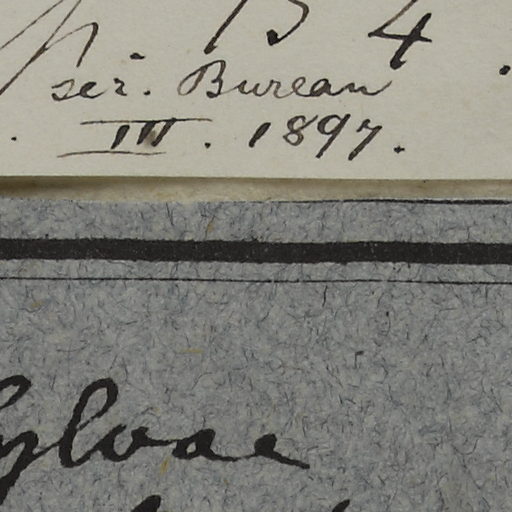 B 4
scr. Bureau
III. 1897.
Sylvae